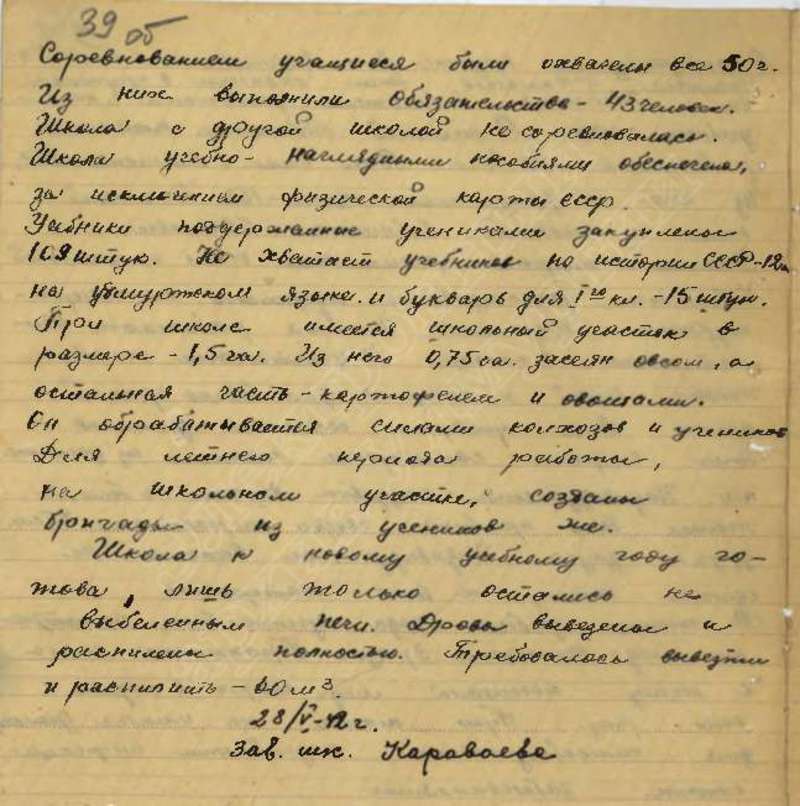 39 об
Соревнованием учащиеся были охвачены все 50 г.
Из них выполнили обязательство - 43 человек.
Школа с другой школой не соревновалась.
Школа учебно-наглядными пособиями обеспечена,
за исключением физической карты СССР.
Учебники поддержанные учениками закуплены
109 штук. Не хватает учебников по истории СССР-12
на удмуртском языке. и букварь для I го кл. - 15 штук.
При школе имеется школьный участок в
размере - 1,5 га. Из него 0,75 га. засеян овсом, а
остальная часть - картофелем и овощами.
Он обрабатывается силами колхозов и учеников
Для летнего периода работы,
на школьном участке, созданы
бригады из учеников же.
Школа к новому учебному году го-
това, лишь только остались не
выбеленным печи. Дрова вывезены и
распилены полностью. Требовалось вывезти
и распилить - 60 м³.
28/V-42 г.
Зав. шк. Караваева